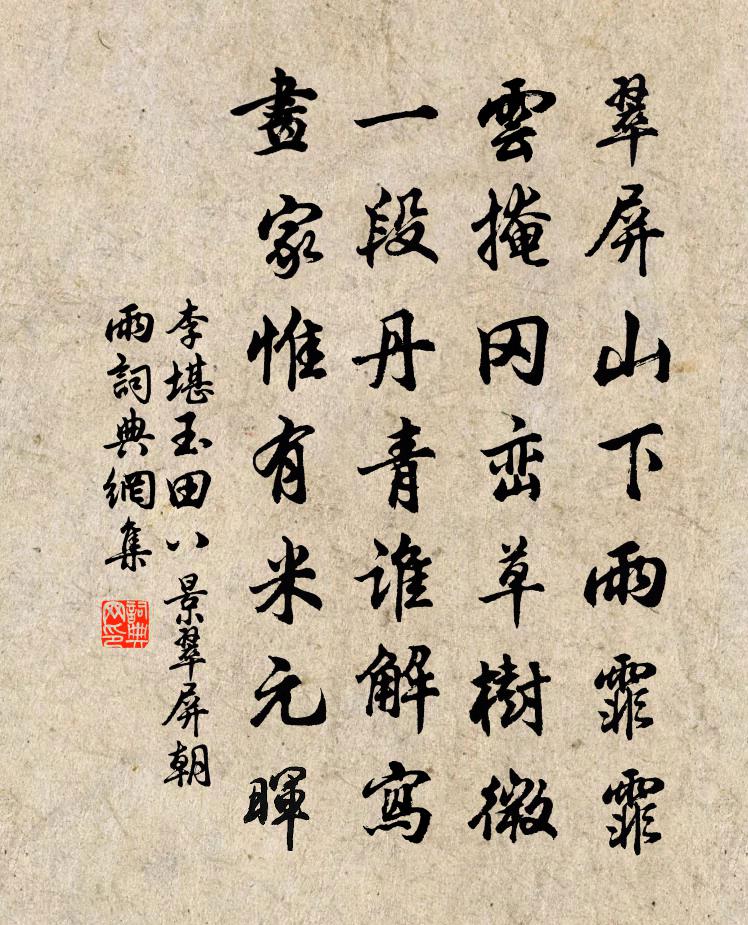 翠屏山下雨霏霏
雲掩冈峦草樹微
一段丹青誰解寫
畫家惟有米元暉
李堪玉田八景翠屏朝
雨詞典網集
詞典
网印